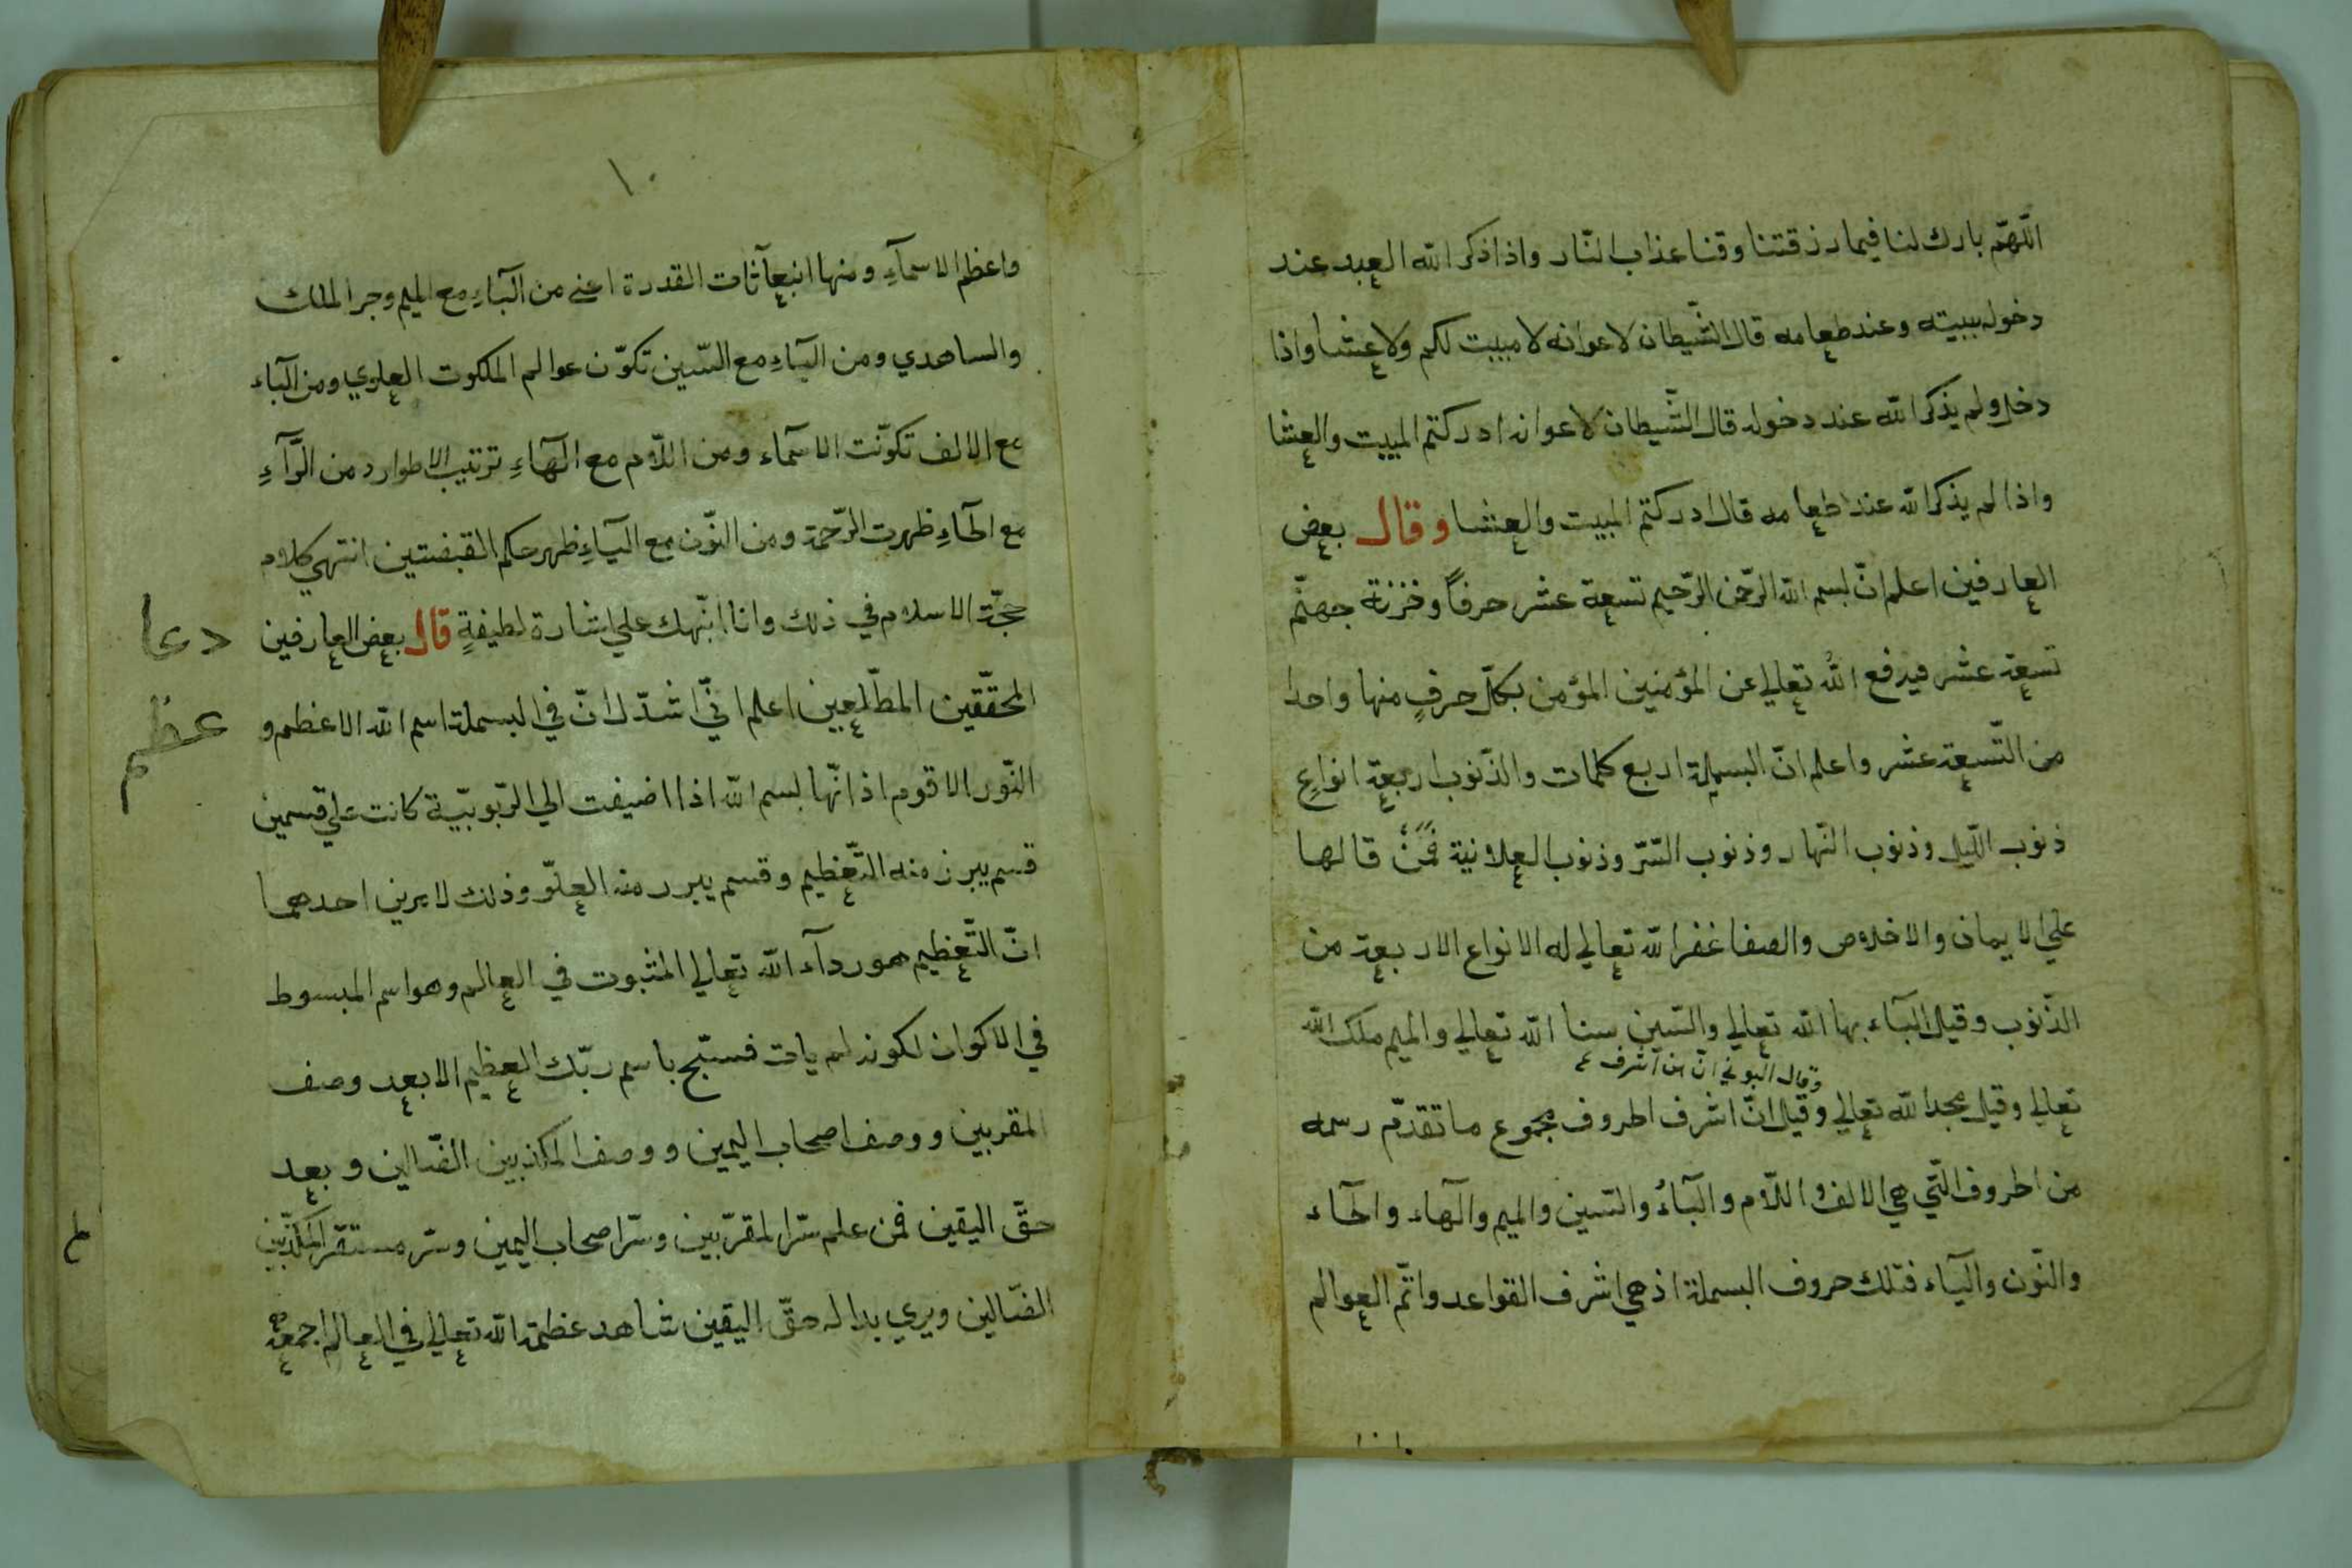 اللّهمّ بارك لنا فيما رزقتنا وقنا عذاب النّار واذا ذكر الله العبد عند
دخوله بيته وعند طعامه قال الشّيطان لاعوانه لا مبيت لكم ولا عشا واذا
دخل ولم يذكر الله عند دخوله قال الشّيطان لاعوانه ادركتم المبيت والعشا
واذا لم يذكر الله عند طعامه قال ادركتم المبيت والعشا وقال بعض
العارفين اعلم انّ بسم الله الرّحمن الرّحيم تسعة عشر حرفاً وخزنة جهنّم
تسعة عشر فيدفع الله تعالي عن المؤمنين المؤمن بكلّ حرفٍ منها واحدا
من التّسعة عشر واعلم انّ البسملة اربع كلمات والذّنوب اربعة انواعٍ
ذنوب اللّيل وذنوب النّهار وذنوب السّرّ وذنوب العلانية فمن قالها
علي الايمان والاخلاص والصفا غفر الله تعالي له الانواع الاربعة من
الذّنوب وقيل البآء بها الله تعالي والسّين سنا الله تعالي والميم ملك الله
وقال البوني انّ من اشرف
تعالي وقيل مجد الله تعالي وقيل انّ اشرف الحروف مجموع ما تقدّم رسمه
من الحروف الّتي هي الالف واللّام والبآء والسّين والميم والهآء والحآء
والنّون واليآء فتلك حروف البسملة اذ هي اشرف القواعد واتّم العوالم
١٠
واعظم الاسمآءِ ومنها انبعاثات القدرة اعني من البآءِ مع الميم وجر الملك
والساهدي ومن اليآءِ مع السّين تكوّن عوالم الملكوت العلوي ومن البآء
مع الالف تكوّنت الاسمآء ومن اللّام مع الهآءِ ترتيب الاطوار ومن الرّآءِ
مع الحآءِ ظهرت الرّحمة ومن النّون مع اليآءِ ظهر حكم القبضتين انتهي كلام
حجّة الاسلام في ذلك وانا انبّهك علي اشارة لطيفةٍ قال بعض العارفين
المحقّقين المطّلعين اعلم انّي اشدّ لك انّ في البسملة اسم الله الاعظم و
النّور الاقوم اذ انّها بسم الله اذا اضيفت الي الرّبوبيّة كانت علي قسمين
قسم يبرز منه التّعظيم وقسم يبرز منه العلوّ وذلك لامرين احدهما
انّ التّعظيم هو ردآء الله تعالي المثبوت في العالم وهو اسم المبسوط
في الاكوان لكونه لم يات فسبّح باسم ربّك العظيم الا بعد وصف
المقربين ووصف اصحاب اليمين ووصف المكذبين الضّالين وبعد
حقّ اليقين فمن علم سّر المقرّبين وسّر اصحاب اليمين وسّر مستقرّ المكذّبين
الضّالين ويري بدا له حقّ اليقين شاهد عظمة الله تعالي في العالم اجمعه
دعا
عظم